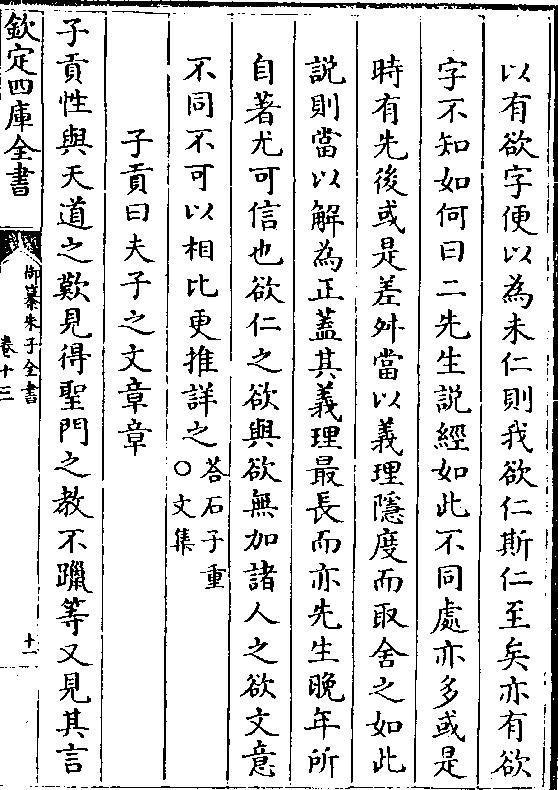 以有欲字便以為未仁則我欲仁斯仁至矣亦有欲
字不知如何曰二先生説經如此不同處亦多或是
時有先後或是差舛當以義理隱度而取舍之如此
説則當以解為正蓋其義理最長而亦先生晚年所
自著尤可信也欲仁之欲與欲無加諸人之欲文意
不同不可以相比更推詳之答石子重○文集
子貢曰夫子之文章章
子貢性與天道之歎見得聖門之教不躐等又見其言
欽定四庫全書
御纂朱子全書
卷十三
十一